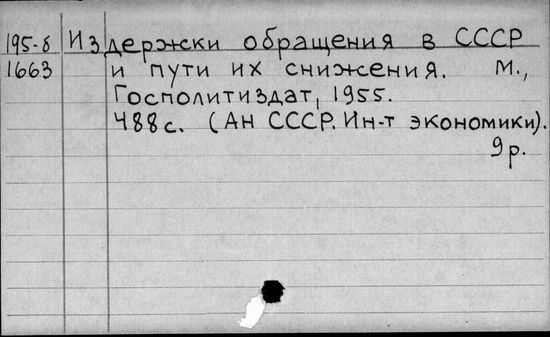 195-б Издержки обращения в СССР
1663 и пути их снижения. М.,
Госполитиздат, 1955.
488с. (Ан СССР. Ин-т экономики).
9р.